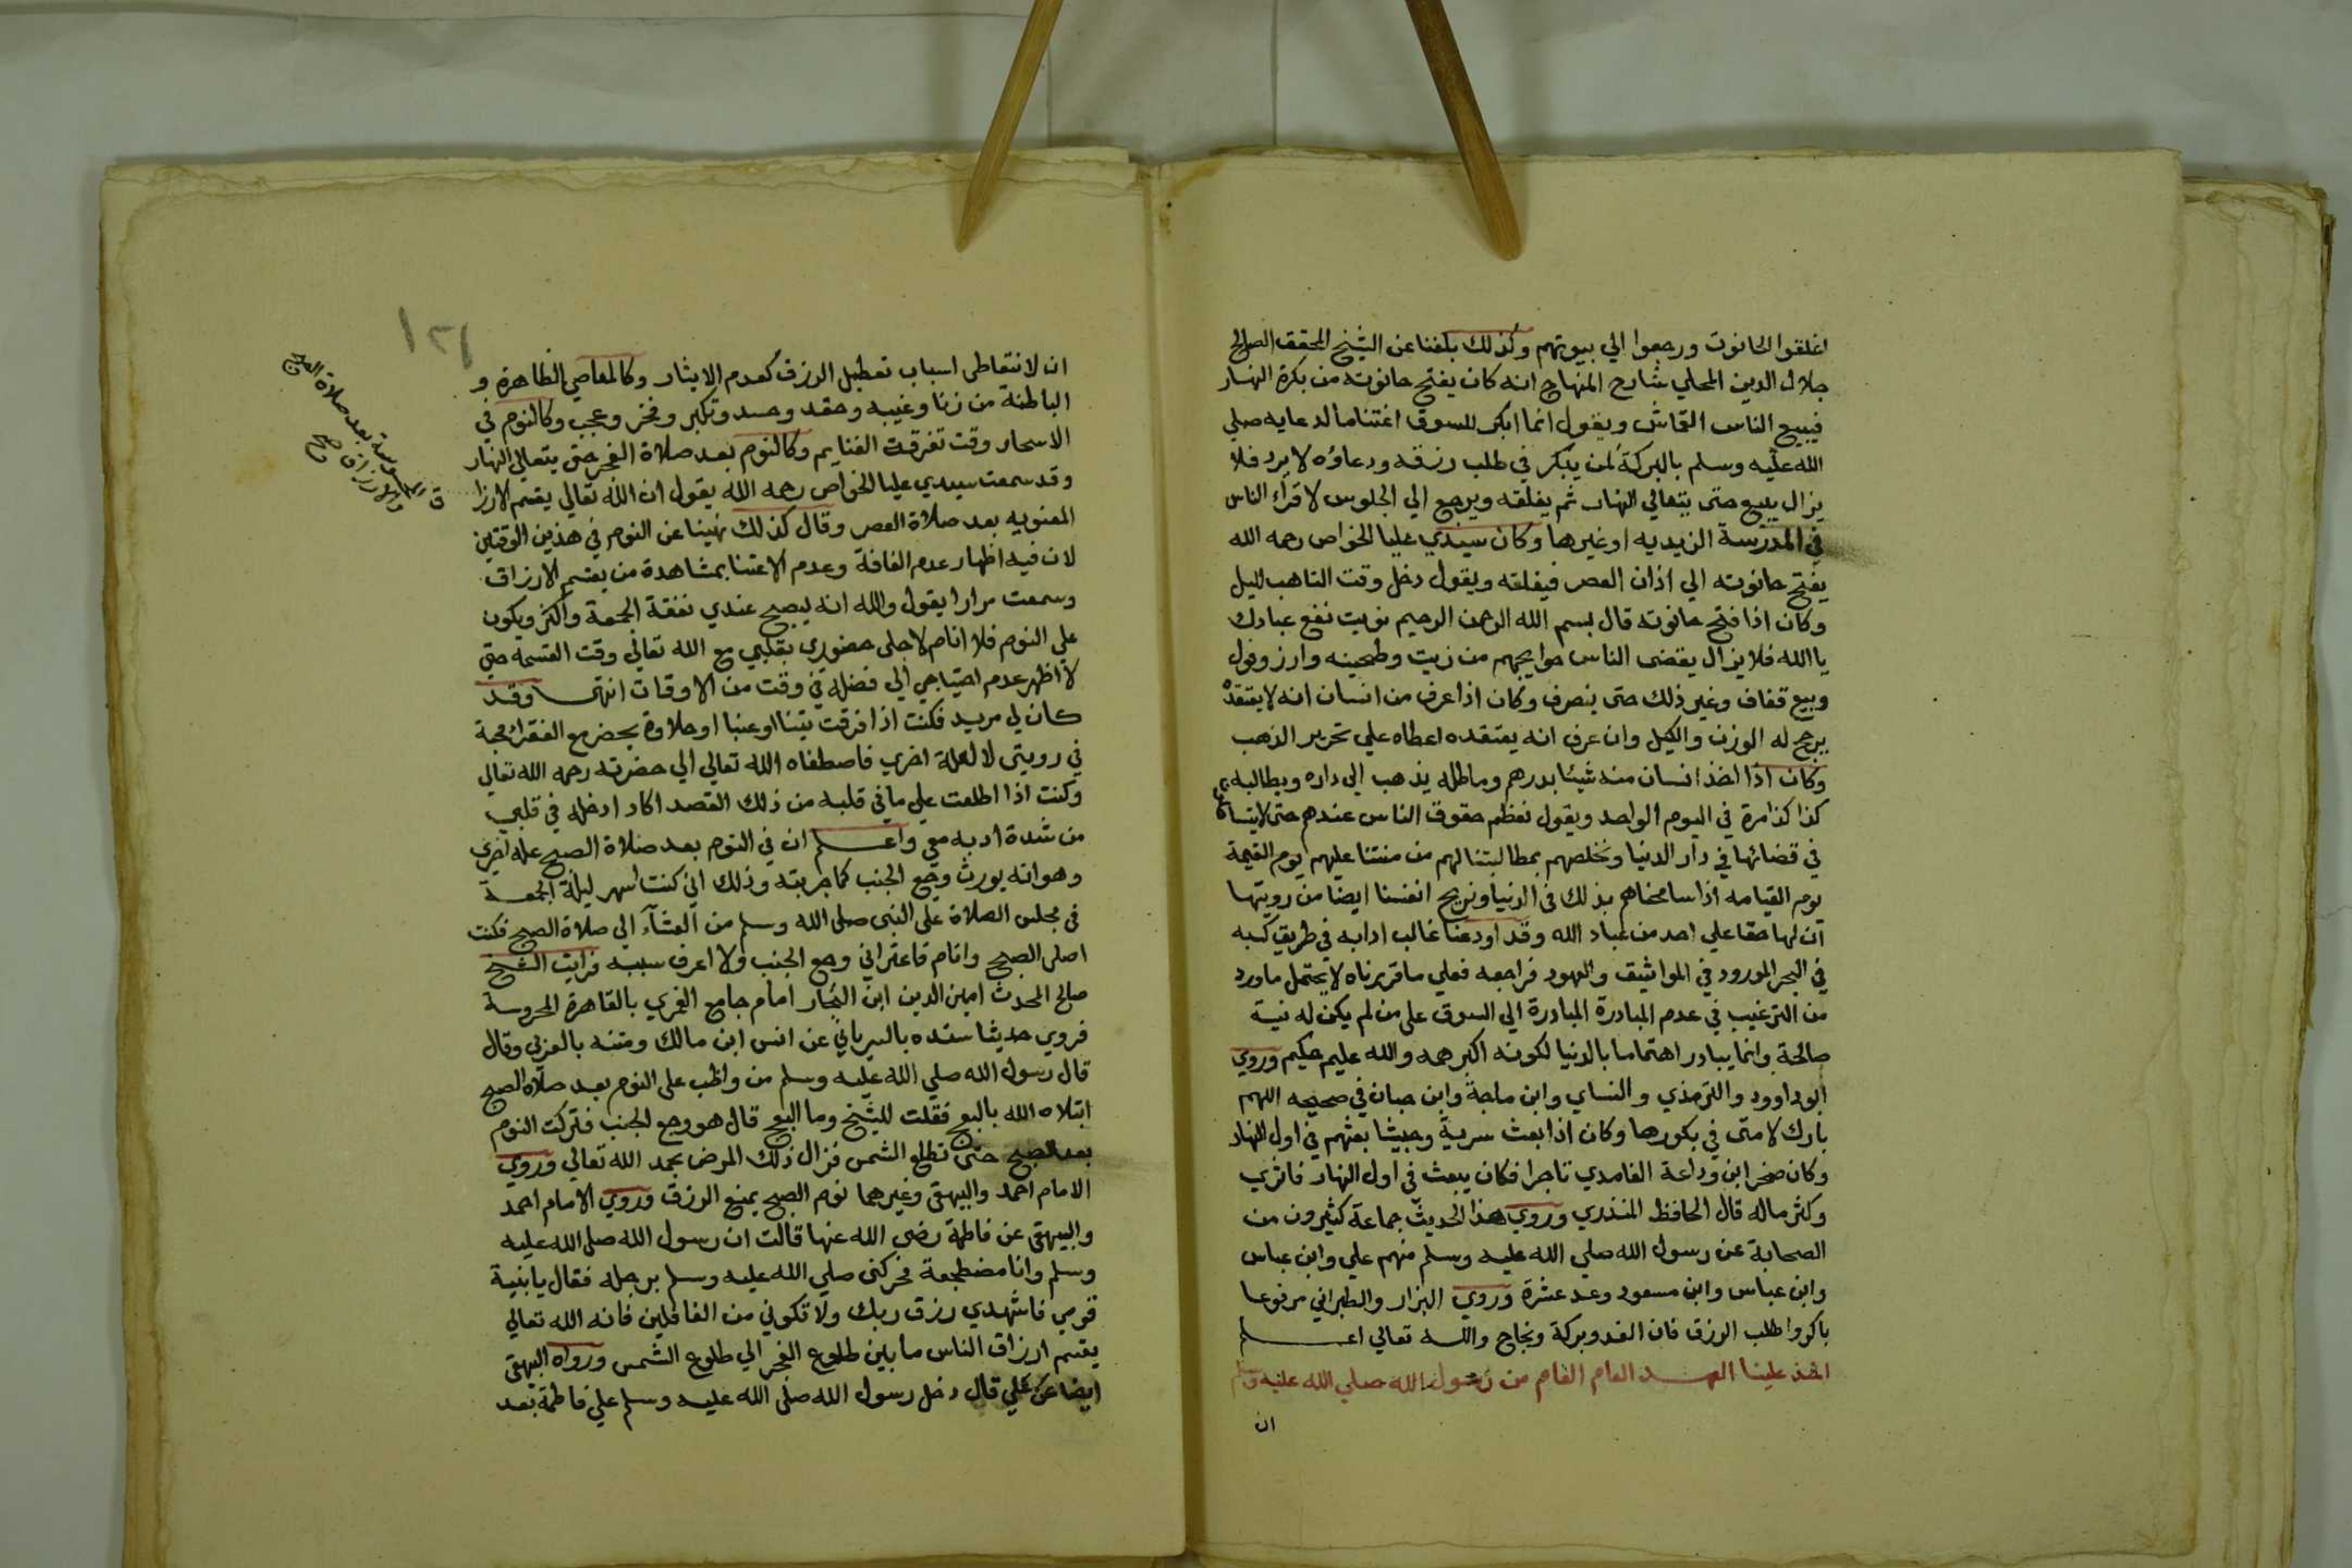 اغلقوا الحانوت ورجعوا الي بيوتهم وكذلك بلغنا عن الشيخ المحقق الصالح
جلال الدين المحلي شارح المنهاج انه كان يفتح حانوته من بكرة النهار
فيبيع الناس القماش ويقول انما ابكر للسوق اغتناما لدعايه صلي
الله عليه وسلم بالبركة لمن يبكر في طلب رزقه ودعاؤه لا يرد فلا
يزال يبيع حتى يتعالي النهار ثم يغلقه ويرجع الي الجلوس لاقراء الناس
في المدرسة الزيديه او غيرها وكان سيدي عليا الخواص رحمه الله
يفتح حانوته الي اذان العصر فيغلقه ويقول دخل وقت التاهب لليل
وكان اذا فتح حانوته قال بسم الله الرحمن الرحيم نويت نفع عبادك
يا الله فلا يزال يقضى الناس حوايجهم من زيت وطحينه وارز وفول
وبيع قفاف وغير ذلك حتى ينصرف وكان اذا عرف من انسان انه لا يعتقده
يرجح له الوزن والكيل وان عرف انه يعتقده اعطاه علي تحرير الذهب
وكان اذا اخذ انسان منه شيئا بدرهم وماطله يذهب الي داره ويطالبه
كذا كذا مرة في اليوم الواحد ويقول نعظم حقوق الناس عندهم حتى لا يتساهلوا
في قضائها في دار الدنيا ونخلصهم بمطالبتنا لهم من منتنا عليهم يوم القيمة
يوم القيامه اذا سامحناهم بذلك في الدنيا ونريح انفسنا ايضا من رويتها
ان لها حقا علي احد من عباد الله وقد اودعنا غالب ادابه في طريق كسبه
في البحر المورود في المواثيق والعهود فراجعه فعلي ما قررناه لا يحتمل ما ورد
من الترغيب في عدم المبادرة المبادرة الي السوق على من لم يكن له نية
صالحة وانما يبادر اهتماما بالدنيا لكونه اكبر همه والله عليم حكيم وروي
ابو داوود والترمذي والنساي وابن ماجة وابن حبان في صحيحه اللهم
بارك لامتى في بكورها وكان اذا بعث سرية وجيشا بعثهم في اول النهار
وكان صخر ابن وداعة الغامدي تاجرا فكان يبعث في اول النهار فاثري
وكثر ماله قال الحافظ المنذري وروي هذا الحديث جماعة كثيرون من
الصحابة عن رسول الله صلي الله عليه وسلم منهم علي وابن عباس
وابن عباس وابن مسعود وعد عشرة وروي البزار والطبراني مرفوعا
باكروا طلب الرزق فان الغدو بركة ونجاح والله تعالي اعلم
اخذ علينا العهد العام العام من رسول الله صلي الله عليه وسلم
ان
١٢١
ان لا نتعاطى اسباب تعطيل الرزق كعدم الايثار وكالمعاصي الظاهرة و
الباطنة من زنا وغيبه وحقد وحسد وتكبر وفخر وعجب وكالنوم في
الاسحار وقت تفرقة الغنايم وكالنوم بعد صلاة الفجر حتى يتعالي النهار
وقد سمعت سيدي عليا الخواص رحمه الله يقول ان الله تعالي يقسم الارزا
ق المحسوسة بعد صلاة الصبح
والارزاق صح
المعنويه بعد صلاة العصر وقال كذلك نهينا عن النوم في هذين الوقتين
لان فيه اظهار عدم الفاقة وعدم الاعتنا بمشاهدة من يقسم الارزاق
وسمعت مرارا يقول والله انه ليصبح عندي نفقة الجمعة واكثر ويكون
على النوم فلا انام لاجلي حضوري بقلبي مع الله تعالي وقت القسمه حتي
لا اظهر عدم احتياجي الي فضله في وقت من الاوقات انتهى وقد
كان لي مريد فكنت اذا فرقت تينا او عنبا او حلاوة يحضر مع الفقراء محبة
في رويتي لا لعلة اخري فاصطفاه الله تعالي الي حضرته رحمه الله تعالي
وكنت اذا اطلعت علي ما في قلبه من ذلك القصد اكاد ادخله في قلبي
من شدة ادبه معي واعلم ان في النوم بعد صلاة الصبح علة اخري
وهو انه يورث وجع الجنب كما جربته وذلك اني كنت اسهر ليلة الجمعة
في مجلس الصلاة على النبى صلى الله وسلم من العشاء الي صلاة الصبح فكنت
اصلى الصبح وانام فاعتراني وجع الجنب ولا اعرف سببه فرايت الشيخ
صالح المحدث امين الدين ابن النجار امام جامع الغمري بالقاهرة المحروسة
فروي حديثا سنده بالسرياني عن انس ابن مالك ومتنه بالعربي وقال
قال رسول الله صلي الله عليه وسلم من واظب على النوم بعد صلاة الصبح
ابتلاه الله بالبعج فقلت للشيخ وما البعج قال هو وجع الجنب فتركت النوم
بعد الصبح حتى تطلع الشمس فزال ذلك المرض بحمد الله تعالي وروي
الامام احمد والبيهقى وغيرهما نوم الصبح يمنع الرزق وروي الامام احمد
والبيهقى عن فاطمة رضي الله عنها قالت ان رسول الله صلى الله عليه
وسلم وانا مضطجعة فحركنى صلي الله عليه وسلم برجله فقال يا بنية
قومي فاشهدي رزق ربك ولا تكوني من الغافلين فانه الله تعالي
يقسم ارزاق الناس ما بين طلوع الفجر الي طلوع الشمس ورواه البيهقى
ايضا عن علي قال دخل رسول الله صلى الله عليه وسلم علي فاطمة بعد